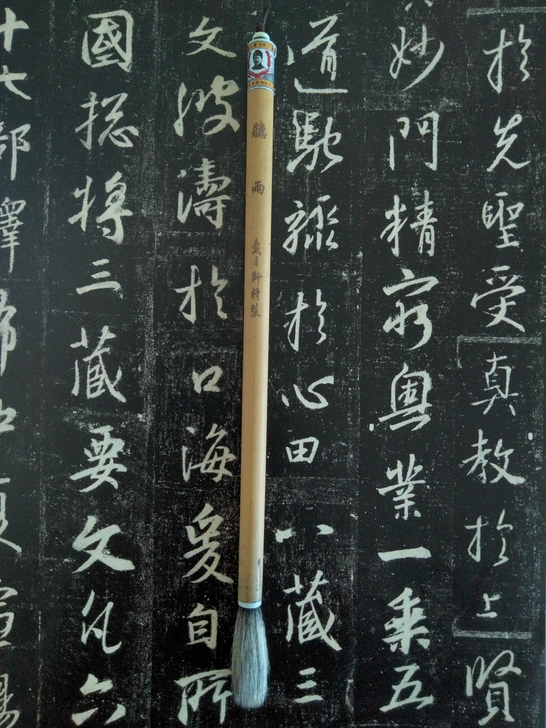 於先聖受真教於上賢
妙門精窮奧業一乘五
道馳驟於心田八藏三
文波濤於口海爰自所
國揔將三藏要文凡六
十七部譯布中夏宣揚
聽雨 戴月軒精製